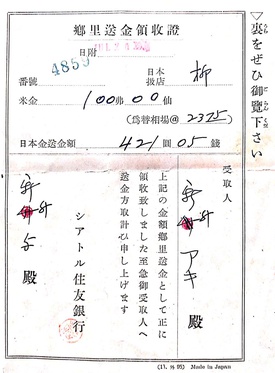 ▽裏をぜひ御覽下さい
鄕里送金領收證
日附
番號 4859 日本扱店 柳
米金 100弗00仙
(爲替相場@ 2375)
日本金送金額 421圓05錢
受取人
アキ 殿
上記の金額鄕里送金として正に
領收致しました至急御受取人へ
送金方取計ひ申し上げます
シアトル住友銀行
殿
Made in Japan